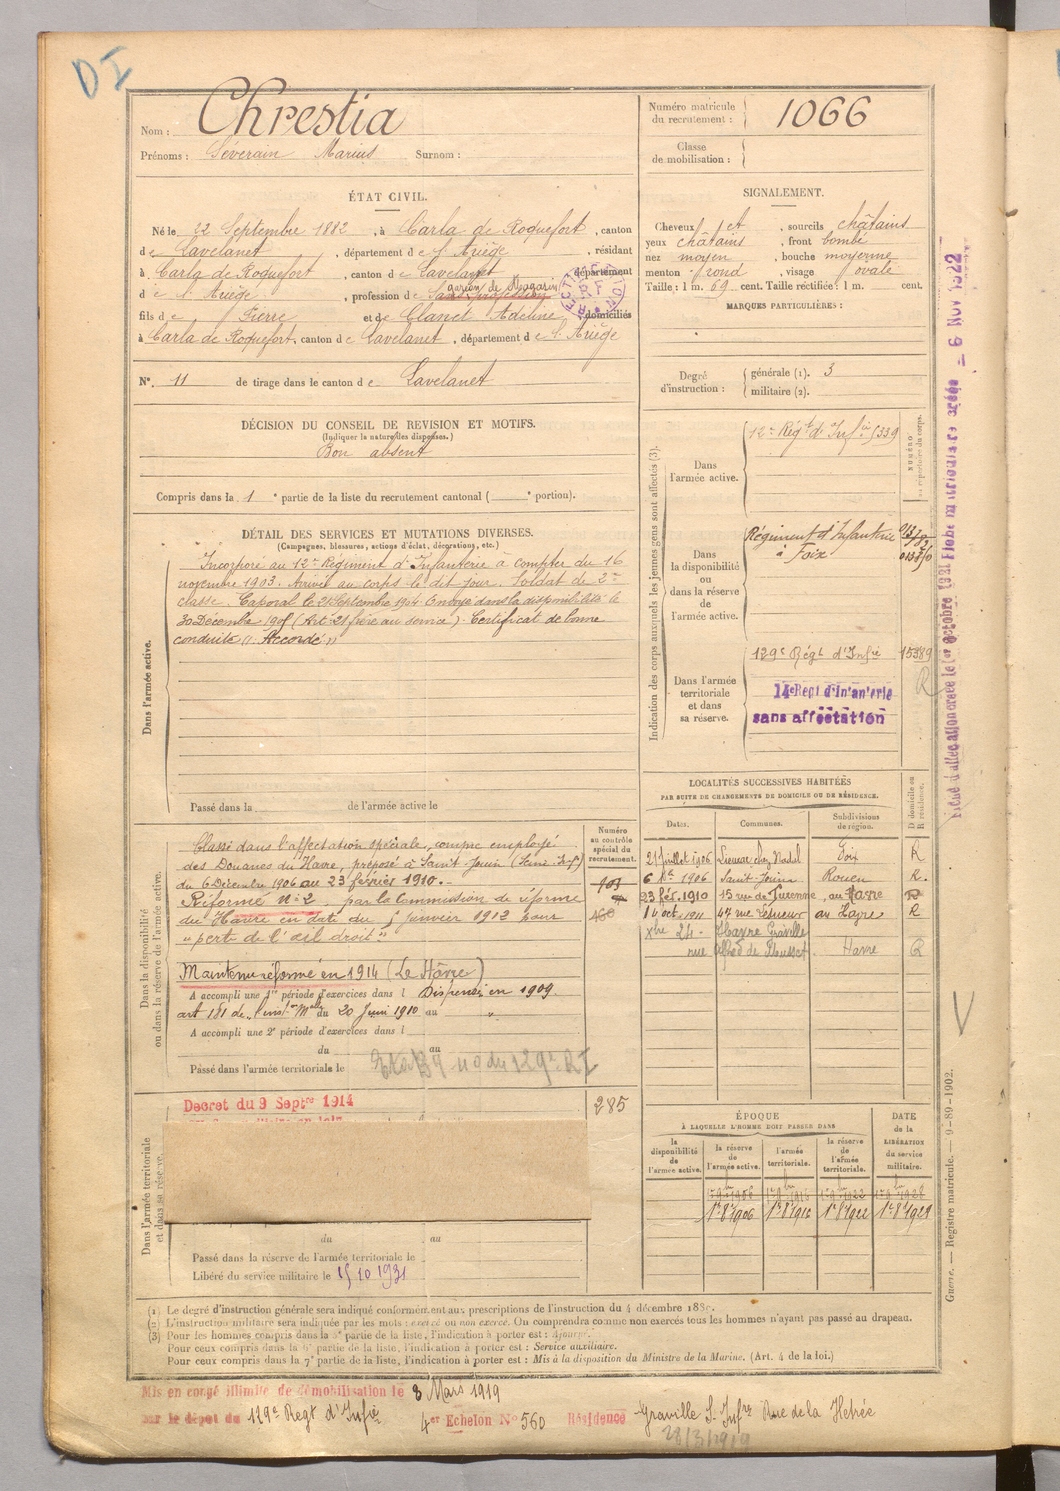 DI
Nom : Chrestia
Prénoms : Séverain Marius Surnom :
Numéro matricule du recrutement : 1066
Classe de mobilisation :
ÉTAT CIVIL.
Né le 22 Septembre 1882, à Carla de Roquefort, canton
de Lavelanet, département de l'Ariège, résidant
à Carla de Roquefort, canton de Lavelanet département
d e l'Ariège, profession de garçon de Magasin
fils de Pierre et de Clanet Adeline, domiciliés
à Carla de Roquefort, canton de Lavelanet, département de l'Ariège
N° 11 de tirage dans le canton de Lavelanet
SIGNALEMENT.
Cheveux et, sourcils châtains
yeux châtains, front bombé
nez moyen, bouche moyenne
menton rond, visage ovale
Taille : 1 m. 69 cent. Taille rectifiée : 1 m. cent.
MARQUES PARTICULIÈRES :
Degré d'instruction : générale (1). 3
militaire (2).
DÉCISION DU CONSEIL DE REVISION ET MOTIFS.
(Indiquer la nature des dispenses.)
Bon absent
Compris dans la 1e partie de la liste du recrutement cantonal ( e portion).
DÉTAIL DES SERVICES ET MUTATIONS DIVERSES.
(Campagnes, blessures, actions d'éclat, décorations, etc.)
Dans l'armée active.
Incorporé au 12e Régiment d'Infanterie à compter du 16
novembre 1903. Arrivé au corps le dit jour. Soldat de 2e
classe. Caporal le 21 Septembre 1904 Envoyé dans la disponibilité le
30 Décembre 1905 (Art. 21 frère au service). Certificat de bonne
conduite " Accordé "
Passé dans la de l'armée active le
Indication des corps auxquels les jeunes gens sont affectés (3).
NUMÉRO au répertoire du corps.
Dans l'armée active.
12e Régt d'Infie 5339
Dans la disponibilité ou dans la réserve de l'armée active.
Régiment d'Infanterie
à Foix
Dans l'armée territoriale et dans sa réserve.
129e Régt d'Infie 15389
R
14e Regt d'Infanterie
sans affectation
LOCALITÉS SUCCESSIVES HABITÉES
PAR SUITE DE CHANGEMENTS DE DOMICILE OU DE RÉSIDENCE.
Dates. Communes. Subdivisions de région. D domicile ou R résidence.
21 Juillet 1906 Foix R
6 Xbre 1906 Saint Jouin Rouen R.
23 fév. 1910 15 rue de Turenne, au Havre R
14 oct. 1911 47 rue Lesueur au Havre R
Xbre 24 - Havre Graville
rue Alfred de Musset Havre R
Dans la disponibilité ou dans la réserve de l'armée active.
Numéro au contrôle spécial du recrutement.
Classé dans l'affectation spéciale, comme employé
des Douanes du Havre, préposé à Saint Jouin (Seine Infre)
du 6 Décembre 1906 au 23 février 1910.-
903
Réformé n° 2, par la Commission de réforme
du Havre en date du 5 Janvier 1912 pour
" perte de l'œil droit "
Maintenu réformé en 1914 (Le Havre)
A accompli une 1re période d'exercices dans l Dispensé en 1909.
art 181 de l'inston Mlle du 20 Juin 1910 au "
A accompli une 2e période d'exercices dans l
du au
Passé dans l'armée territoriale le
Dans l'armée territoriale et dans sa réserve.
Decret du 9 Septre 1914
285
du au
Passé dans la réserve de l'armée territoriale le
Libéré du service militaire le 15 10 1931
ÉPOQUE
À LAQUELLE L'HOMME DOIT PASSER DANS
DATE de la LIBÉRATION du service militaire.
la disponibilité de l'armée active. la réserve de l'armée active. l'armée territoriale. la réserve de l'armée territoriale.
1er 9bre 1906 1er 9bre 1916 1er 9bre 1922 1er 9bre 1928
(1) Le degré d'instruction générale sera indiqué conformément aux prescriptions de l'instruction du 4 décembre 188
(2) L'instruction militaire sera indiquée par les mots : exercé ou non exercé. On comprendra comme non exercés tous les hommes n'ayant pas passé au drapeau.
(3) Pour les hommes compris dans la 5e partie de la liste, l'indication à porter est : Ajourné.
Pour ceux compris dans la 6e partie de la liste, l'indication à porter est : Service auxiliaire.
Pour ceux compris dans la 7e partie de la liste, l'indication à porter est : Mis à la disposition du Ministre de la Marine. (Art. 4 de la loi.)
Mis en congé illimité de démobilisation le 3 Mars 1919
par le dépot du 129e Regt d'Infie 4er Echelon N° 560 Résidence Graville S. Infre Rue de la Hetrée
28/3/1919
Guerre. — Registre matricule. — 9-89-1902.
Fiche d'affectation créée le 1er octobre 1921 Fiche matriculaire créée - 6 Nov 1922
V